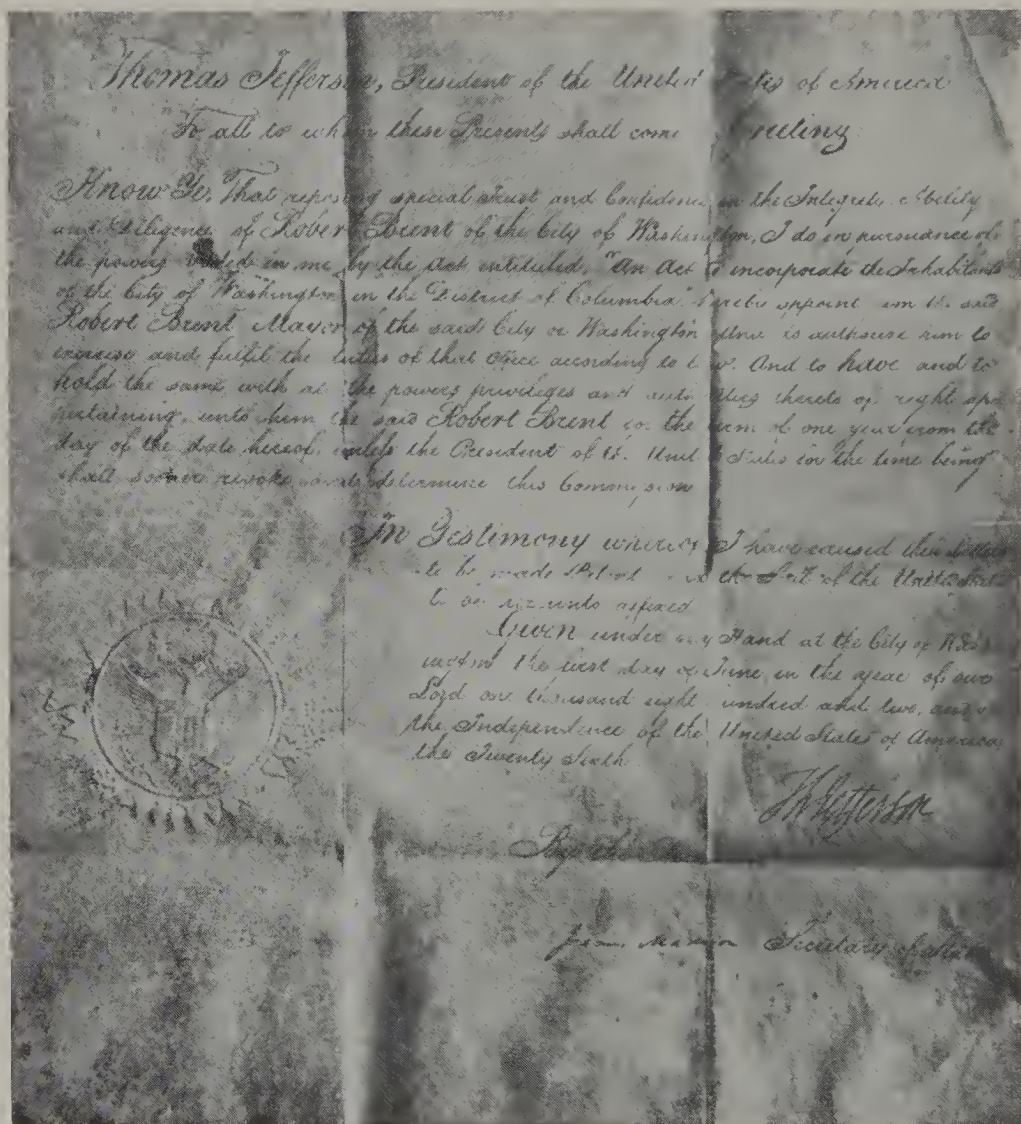 Thomas Jefferson, President of the United States of America
To all to whom these Presents shall come Greeting
Know Ye, That reposing special Trust and Confidence in the Integrity Ability
and Diligence of Robert Brent of the City of Washington, I do in pursuance of
the powers vested in me by the Act intituled, "An Act to incorporate the Inhabitants
of the City of Washington in the District of Columbia" hereby appoint him the said
Robert Brent Mayor of the said City of Washington and to authorise him to
exercise and fulfil the duties of that Office according to law. And to have and to
hold the same with all the powers privileges and authorities thereto of right apper
tertaining, unto him the said Robert Brent for the term of one year from the
day of the date hereof, unless the President of the United States for the time being
shall sooner revoke and determine this Commission
In Testimony whereof I have caused these Letters
to be made Patent and the Seal of the United States
to be hereunto affixed
Given under my Hand at the City of Wash
ington the first day of June, in the year of our
Lord one thousand eight hundred and two, and of
the Independence of the United States of America,
the Twenty Sixth
Th Jefferson
By the
James Madison Secretary of State